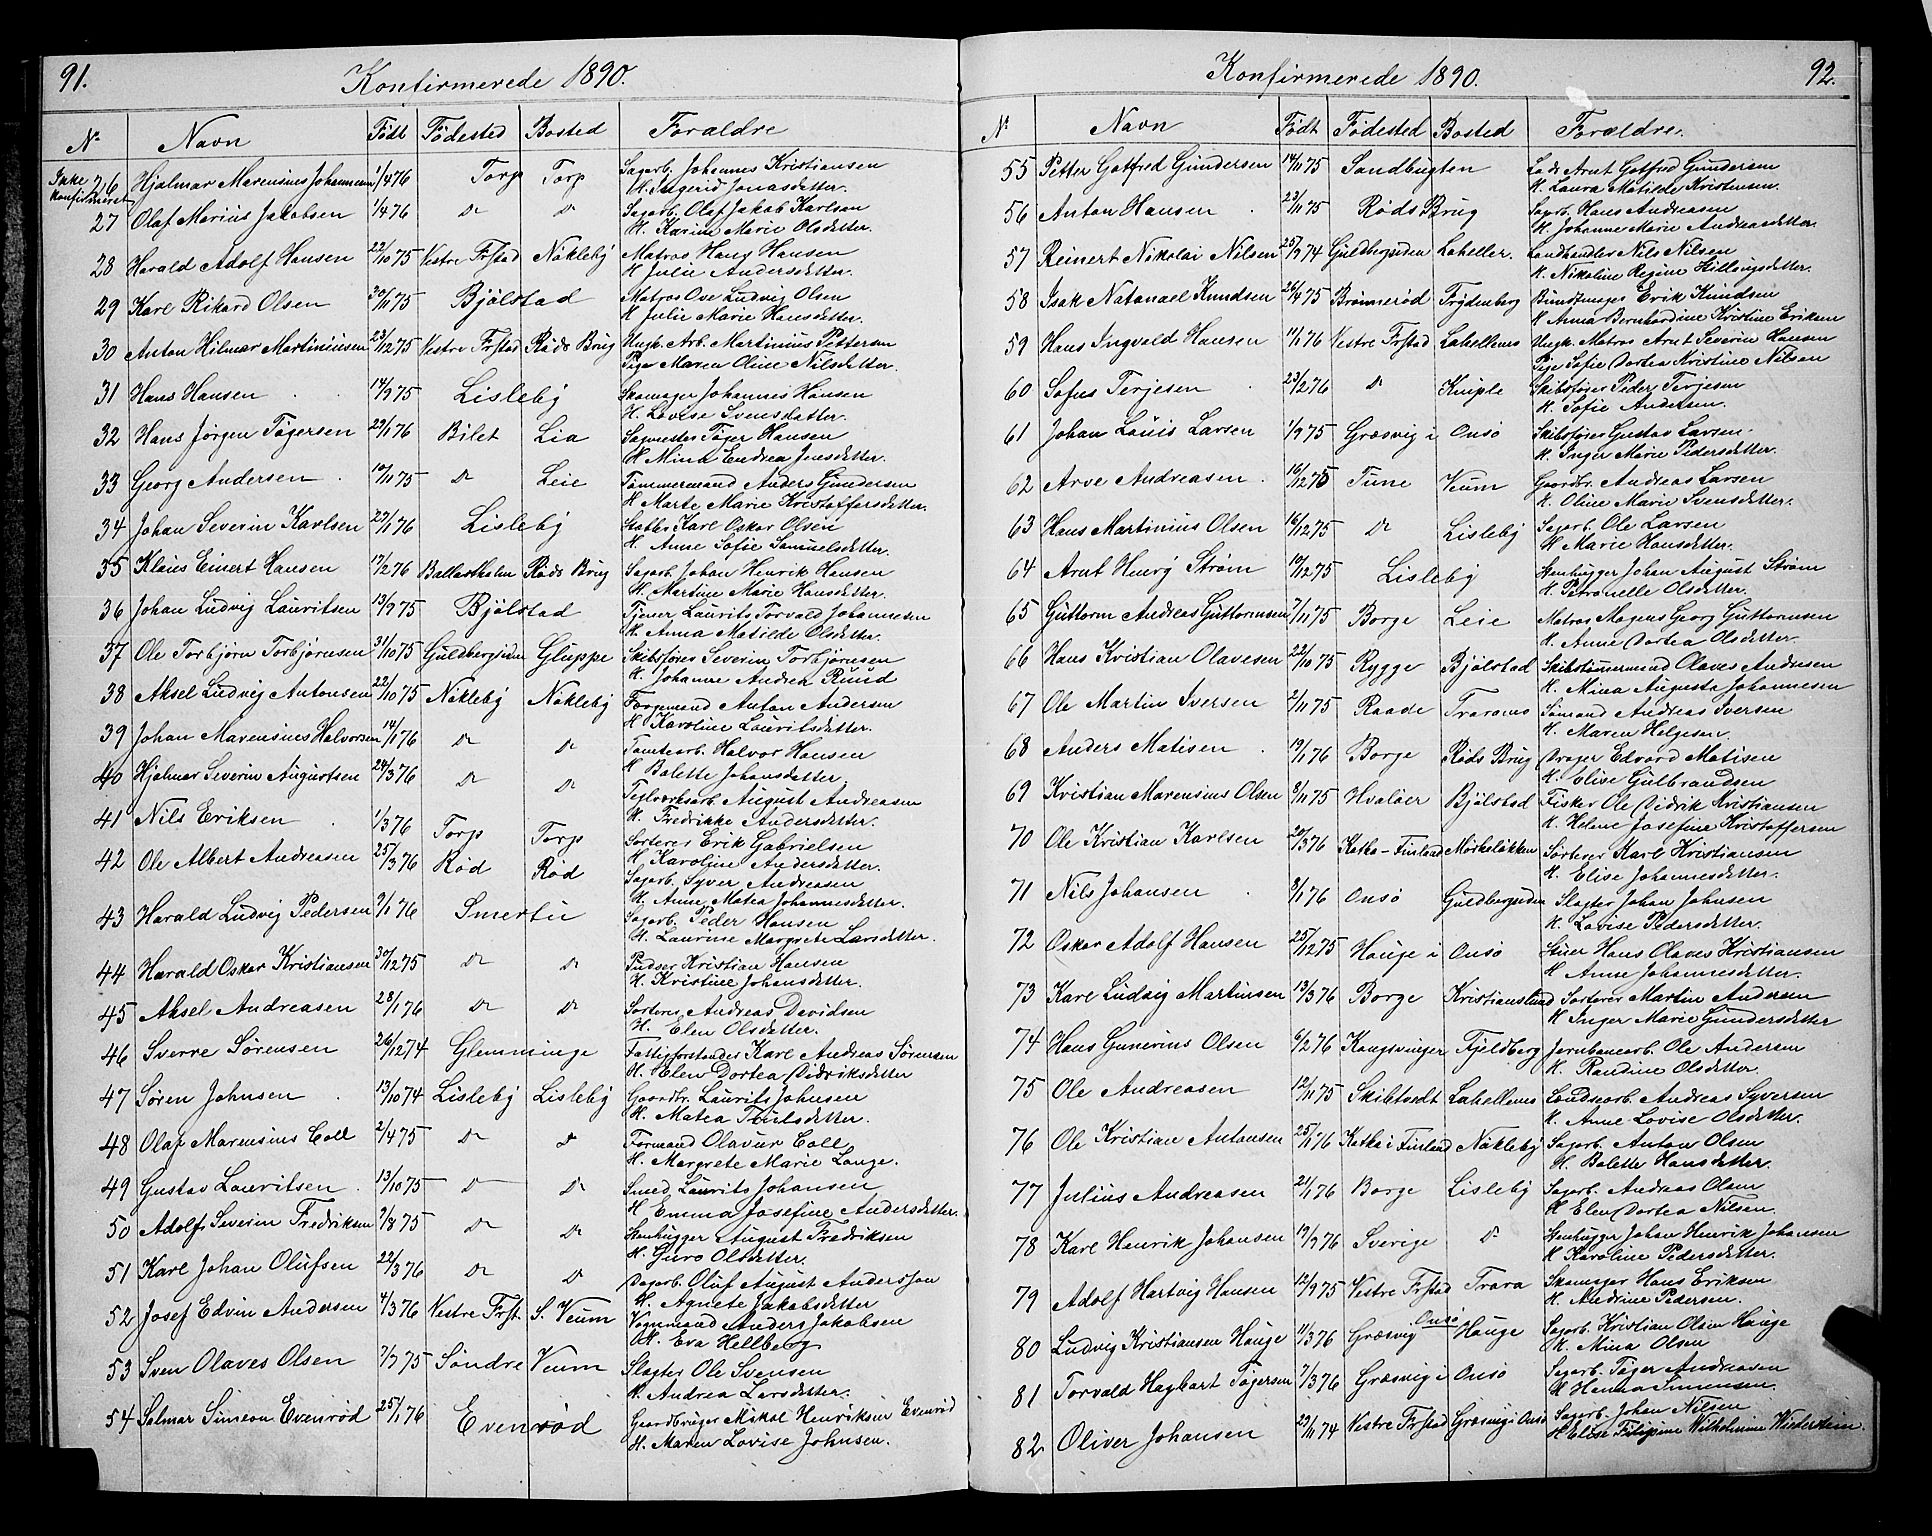 91.
Konfirmerede 1890.
No Navn Født Fødested Bosted Forældre
Ikke konfirmeret 26 Hjalmar Marensius Johannesen 1/4 76 Torp Torp Sagarb. Johannes Kristiansen
H. Ingerid Jonasdatter.
27 Olaf Marius Jakobsen 1/4 76 Do Do Sagarb. Olaf Jakob Karlsen
H. Karine Marie Olsdatter.
28 Harald Adolf Hansen 22/10 75 Vestre Frstad Nökleby Matros Hans Hansen
H. Julie Andersdatter.
29 Karl Rikard Olsen 30/11 75 Bjölstad Matros Ove Ludvig Olsen
H. Julie Marie Hansdatter.
30 Anton Hilmar Martiniusen 23/12 75 Vestre Frstad Röds Brug Ungk. Arb. Martinius Pettersen
Pige Maren Oline Nilsdatter.
31 Hans Hansen 14/9 75 Lisleby Skomager Johannes Hansen
H. Lovise Svensdatter.
32 Hans Jörgen Tögersen 22/1 76 Bilet Lia Sagmester Töger Hansen
H. Mina Endrea Jensdatter.
33 Georg Andersen 10/11 75 Do Leie Tömmermand Anders Gundersen
H. Marte Marie Kristoffersdatter.
34 Johan Severin Karlsen 27/1 76 Lisleby Stabbr. Karl Oskar Olsen
H. Anne Sofie Samuelsdatter.
35 Klaus Einert Hansen 17/2 76 Ballastholm Röds Brug Sagarb. Johan Henrik Hansen
H. Martine Marie Hansdatter.
36 Johan Ludvig Lauritsen 13/9 75 Bjölstad Tjener Laurits Torvald Johannesen
H. Anna Matilde Olsdatter.
37 Ole Torbjörn Torbjörnsen 31/10 75 Guldbergsiden Gluppe Skibsförer Severin Torbjörnsen
H. Johanne Andrea Ruud
38 Aksel Ludvig Antonsen 22/10 75 Nökleby Nökleby Færgemand Anton Andersen
H. Karoline Lauritsdatter.
39 Johan Marensius Halvorsen 14/1 76 Do Do Tomtearb. Halvor Hansen
H. Bolette Johansdatter.
40 Hjalmar Severin Augustsen 24/3 76 Do Do Teglværksarb. August Andreasen
H. Fredrikke Andersdatter.
41 Nils Eriksen 1/3 76 Torp Torp Sorterer Erik Gabrielsen
H. Karoline Andersdatter.
42 Ole Albert Andreasen 25/3 76 Röd Röd Sagarb. Syver Andreasen
H. Anne Matea Johannesdatter.
43 Harald Ludvig Pedersen 9/1 76 Smertu Sagarb. Peder Hansen
H. Laurine Margrete Larsdatter.
44 Harald Oskar Kristiansen 30/12 75 Do Do Pudser Kristian Hansen
H. Kristine Johansdatter.
45 Aksel Andreasen 28/1 76 Do Do Sorterer Andreas Davidsen
H. Elen Olsdatter.
46 Sverre Sörensen 26/12 74 Glemminge Fattigforstander Karl Andreas Sörensen
H. Elen Dortea Didriksdatter
47 Sören Johnsen 13/10 74 Lisleby Lisleby Gaardbr. Laurits Johnsen
H. Matea Truelsdatter.
48 Olaf Marensius Coll 2/4 75 Do Do Formand Olavur Coll
H. Margrete Marie Lange.
49 Gustav Lauritsen 13/10 75 Do Do Smed Laurits Johansen
H. Emma Josefine Andersdatter.
50 Adolf Severin Fredriksen 9/8 75 Do Do Stenhugger August Fredriksen
H. Guro Olsdatter.
51 Karl Johan Olufsen 22/3 76 Do Do Dagarb. Oluf August Andersson
H. Agnete Jakobsdatter
52 Josef Edvin Andersen 4/3 76 Vestre Frst. S. Veum Vognmand Anders Jakobsen
H. Eva Hellberg
53 Sven Olaves Olsen 7/7 75 Söndre Veum Slagter Ole Svensen
H. Andrea Larsdatter.
54 Salmar Simeon Evenröd 25/1 76 Evenröd Gaardbruger Mikal Henriksen Evenröd
H. Maren Lovise Johnsen.
Konfirmerede 1890. 92.
No Navn Født Fødested Bosted Forældre.
55 Petter Gotfred Gundersen 14/11 75 Sandbugten Lods Arnt Gotfred Gundersen
H. Laura Matilde Kristensen.
56 Anton Hansen 23/11 75 Röds Brug Sagarb. Hans Andreasen
H. Johanne Marie Andreasdatter.
57 Reinert Nikolai Nilsen 25/9 74 Guldbergsiden Laheller. Landhandler Nils Nilsen
H. Nikoline Regine Hillingsdatter.
58 Isak Natanael Knudsen 26/4 75 Brönneröd Trydenberg Bundtmager Erik Knudsen
H. Anna Bernhardine Kristine Eriksen
59 Hans Ingvald Hansen 11/1 76 Vestre Frstad Lahellens Ungk. Matros Arnt Severin Hansen
Pige Sofie Dortea Kristine Nilsen
60 Sofus Terjesen 23/2 76 Do Kniple Skibsförer Peder Terjesen
H. Sofie Andersen.
61 Johan Louis Larsen 1/9 75 Græsvig i Onsö Skibsförer Gustav Larsen.
H. Inger Marie Pedersdatter.
62 Arve Andreasen 16/12 75 Tune Veum Gaardbr. Andreas Larsen
H. Oline Marie Svensdatter.
63 Hans Martinius Olsen 16/12 75 Do Lisleby Sagarb. Ole Larsen
H. Marie Hansdatter.
64 Arnt Henry Ström 10/12 75 Lisleby Stenhugger Johan August Ström
H. Petronelle Olsdatter.
65 Guttorm Andreas Guttormsen 7/11 75 Borge Leie Matros Magnus Georg Guttormsen
H. Anne Dortea Olsdatter.
66 Hans Kristian Olavesen 22/10 75 Rygge Bjölstad Skibstömmermand Olaves Andresen
H. Mina Augusta Johannesen
67 Ole Martin Iversen 2/11 75 Raade Traranes Sömand Andreas Iversen
H. Maren Helgesen.
68 Anders Matisen 19/1 76 Borge Röds Brug Drager Edvard Matisen
H. Elise Gulbrandsen
69 Kristian Marensius Olsen 8/11 75 Hvaløer Bjölstad Fisker Ole Didrik Kristiansen
H. Helene Josefine Kristoffersen
70 Ole Kristian Karlsen 20/3 76 Kotka-Finland Mörkelökken Sorterer Karl Kristiansen
H. Elise Johannesdatter.
71 Nils Johansen 8/1 76 Onsö Guldbergsiden Slagter Johan Johnsen
H. Lovise Pedersdatter.
72 Oskar Adolf Hansen 25/12 75 Hauge i Onsö Stuer Hans Olaves Kristiansen
H. Anne Johannesdatter.
73 Karl Ludvig Martinsen 13/3 76 Borge Kristianslund Sorterer Martin Andersen
H. Inger Marie Gundersdatter
74 Hans Gunerius Olsen 6/2 76 Kongsvinger Fjeldberg Jernbanearb. Ole Andersen
H. Randine Olsdatter.
75 Ole Andreasen 12/11 75 Skibtvedt Lahellens Tömdearb. Andreas Syversen
H. Anne Lovise Olsdatter.
76 Ole Kristian Antonsen 25/1 76 Kotka i Finland Nökleby Sagarb. Anton Olsen
H. Bolette Hansdatter.
77 Julius Andreasen 21/1 76 Borge Lisleby Sagarb. Andreas Olsen
H. Elen Dortea Nilsen.
78 Karl Henrik Johansen 19/9 76 Sverige Do Stenhugger Johan Henrik Johansen
H. Karoline Pedersdatter.
79 Adolf Hartvig Hansen 12/9 75 Vestre Frstad Trara Skomager Hans Eriksen
H. Andrine Pedersen.
80 Ludvig Kristiansen Hauge 11/3 76 Græsvig Onsö Hauge Sagarb. Kristian Olsen Hauge
H. Mina Olsen
81 Torvald Hagbart Tögersen 7/3 76 Græsvig i Onsö Sagarb. Töger Andreasen
H. Hanna Simensen.
82 Oliver Johansen 23/11 74 Vestre Frstad Græsvig i Onsö Sagarb. Johan Nilsen
H. Elise Filipine Wilhelmine Wiederstein.